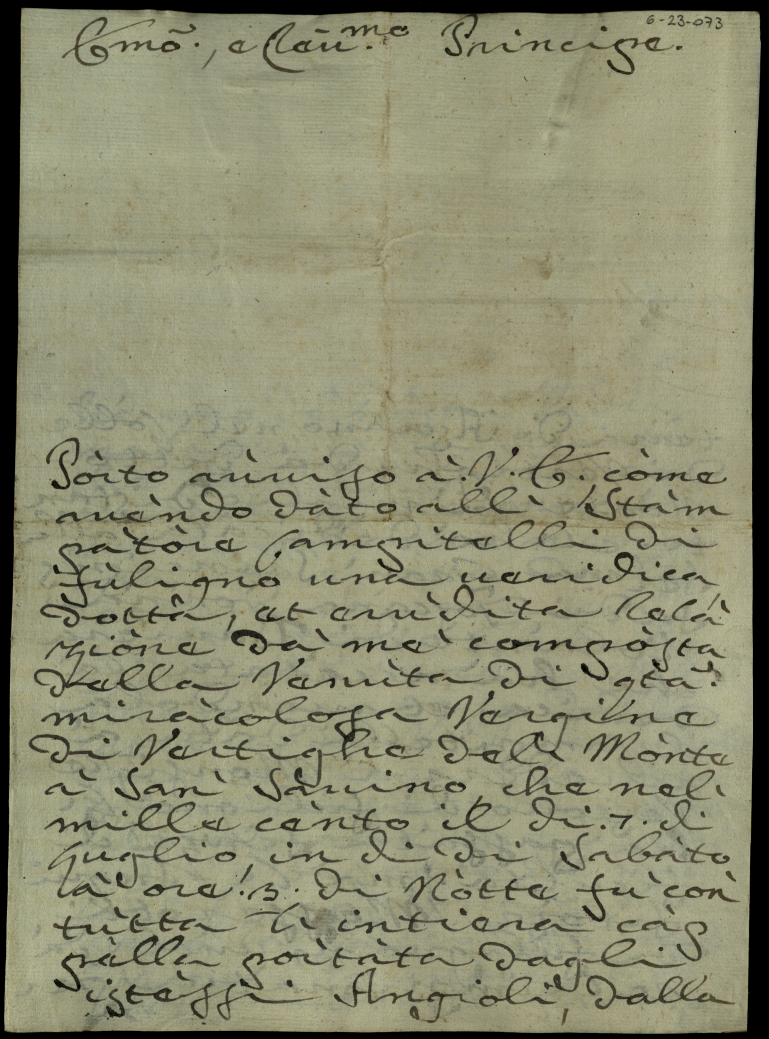 6-23-073
Emõ., e Reũ.mo Principe.
Pòrto auùiso à V. E. còme
auèndo dàto allì Stàm
patòre Campitelli di
fùligno unà ueridica
dottà, et erùdita Relà
ziòne dà mè compòsta
della Venùta di qta
miràcolosa Vergine
di Vertighe del Mònte
à San Sàuino, che nel
mille cènto il dì .7. di
Luglio, in dì di Sabàto
à ore .3. di Nòtte fù con
tùtta l'intiera càp
pèlla portàta dagli
istèssi Angioli, dalla